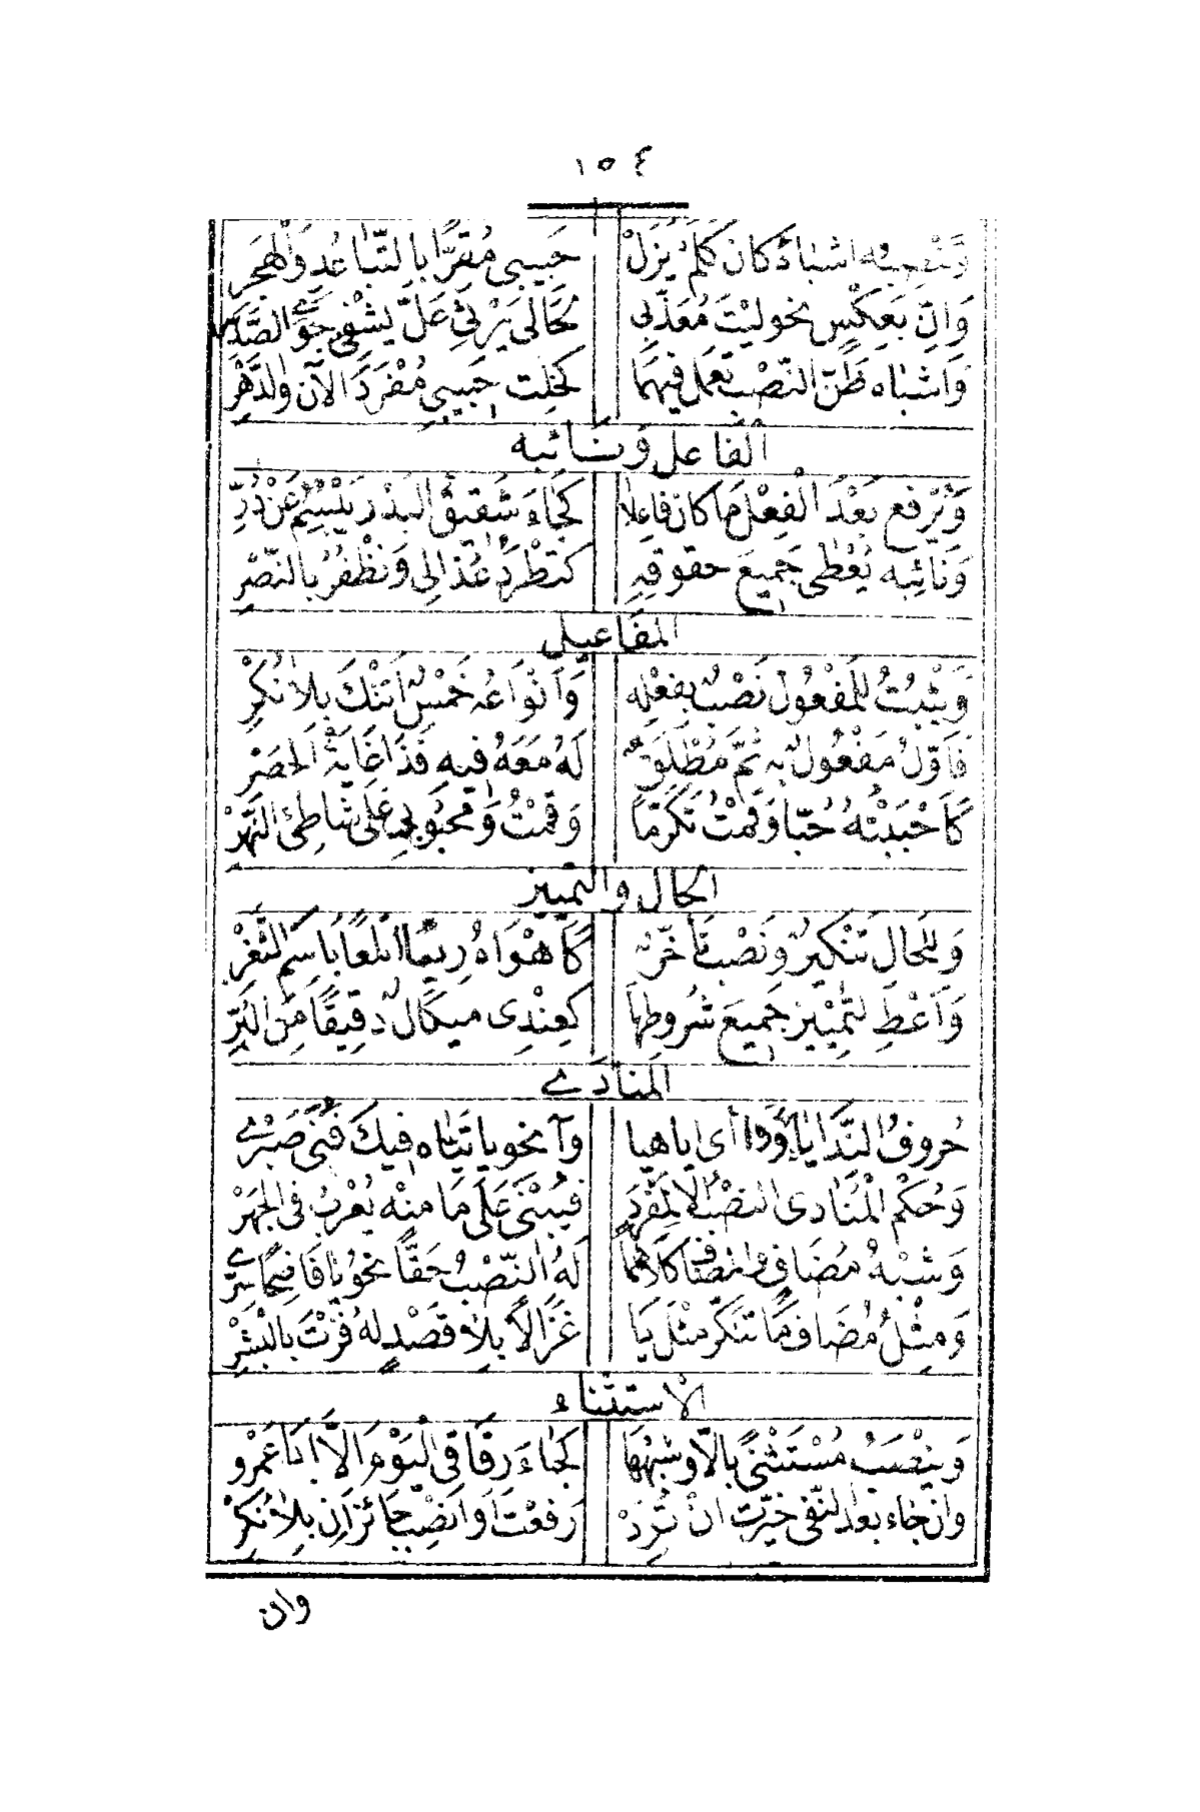 ١٥٤
وَتَنْصِبُه اشباهُ كانَ كَلَمْ يَزَلْ حَبِيبى مُقِرًّا بالتَّبَاعُدِ وَالْهَجْرِ
وَانِّ بَعِكْسٍ نحوليْتَ مُعَذّبى لحَالى يَرْثى عَلَّ يَشْفى جَوَى الصَّدر
وَاَشباه ظَنّ النّصْبَ تَعمل فيهمَا كخِلت حَبيبى مُفْرَدَ الآن والدَّهْرِ
الفاعل وَنائبه
وَتَرفع بَعْدَ الْفِعْل مَا كان فاعِلا كَجَاءَ شَقيقُ البَدْر يَبْسِمُ عَنْ دُرِّ
وَنَائِبه يُعْطى جَميعَ حقوقِهِ كتُطْرَدُ عُذالى وَنظْفرُ بالنّصْرِ
المفاعيل
وَيَثبُتُ لِلْمَفْعُول نَصْبٌ بفعْلِه وَاَنوَاعُه خَمْسٌ اَتَتْكَ بِلاَ نُكْرِ
فَاَوّلُ مَفْعُولٌ بِه ثمّ مُطْلَقٌ لَهُ مَعَهُ فيهِ فذَا غَايَةُ الحَصْرِ
كَاَحْبَبْتُهُ حُبّا وَقمْتُ تكرّمًا وَقمْتُ وَمحْبُوبى عَلى شاطِئ النَّهرْ
الحال والتمييز
وَلِلحَال تَنْكيرٌ وَنَصْبٌ تَأخّرٌ كَاَهْوَاهُ رِيمًا اَتلعًا بَاسِمَ الثَّغْرِ
وَاَعْطِ لتَمْيِيز جَميعَ شُروطِهَا كعِنْدِى ميكَالٌ دقِيقًا مِنَ البُرِّ
المنادَى
حُروفُ النّدَا يَا وَوَا أى اَيا هَيا وآ نحو يا تيّاه فيكَ فَنى صَبْرى
وَحُكْم الْمنَادى النصْبُ الا لمفْردٍ فيُبْنَى عَلَى مَا منْه يُعْربُ فى الجهْرِ
وَشبْهُ مُضَافٍ والمضاف كلاَهما لهُ النّصْبُ حَقًّا نحوُ يا فاضحًا سِرّى
وَمِثْلُ مُضَاف مَا تنكّر مثلَ يَا غَزَالاً بِلاَ قصْدٍ لهُ فزْتَ بالْبِشْرِ
الاستثناء
وَينْصَبُ مُسْتَثْنًى بالّا وشبْهِهَا كجَاءَ رِفَاقى الْيَوْمَ الَّا ابَا عَمْرو
وان جَاء بعدَ النّفى خيِّرت انْ تُرِدْ رَفعْتَ اَوَانصِبْ جَائزَانِ بِلاَ نُكْرِ
وان